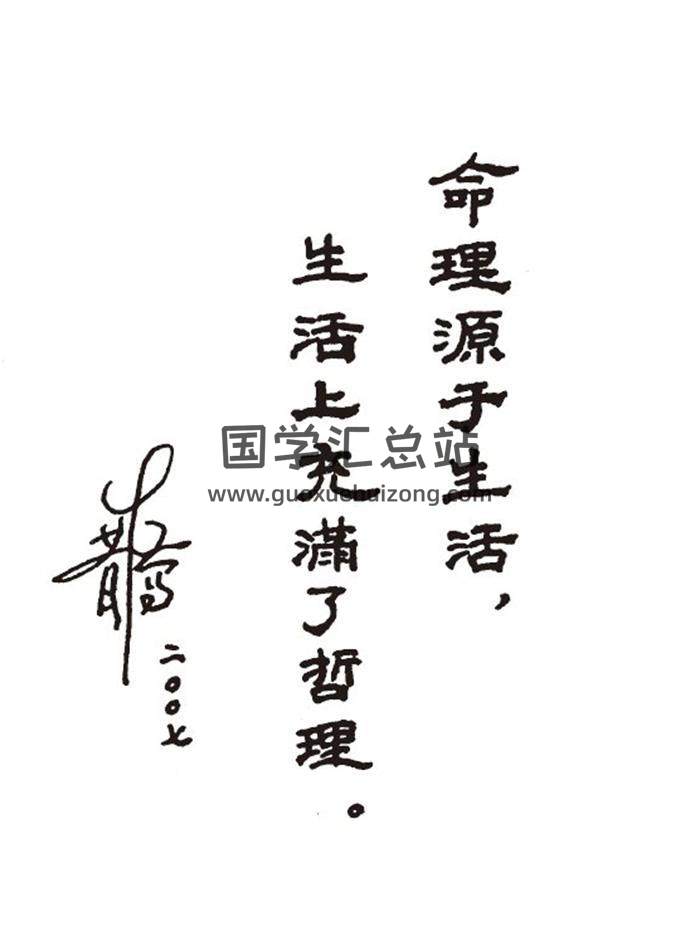 命理源于生活，
生活上充滿了哲理。
二〇〇七
国学汇总站
www.guoxuehuizong.com